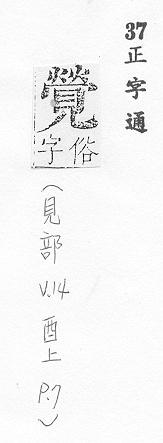 37正字通
俗字
(見部 V.14 酉上 P.7)